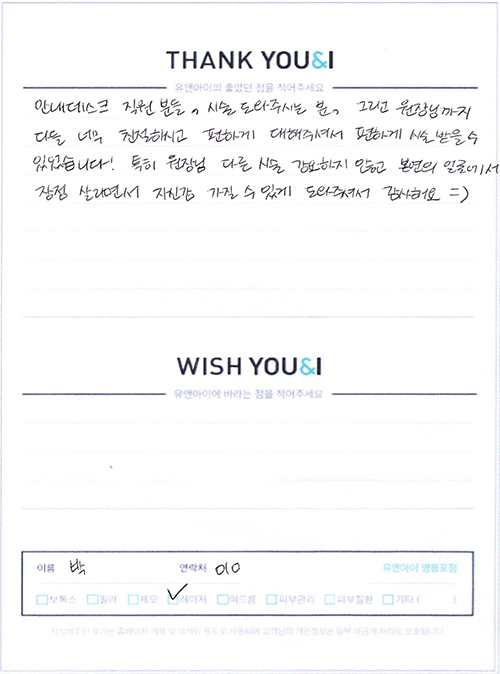 THANK YOU&I
유앤아이의 좋았던 점을 적어주세요
안내데스크 직원 분들, 시술 도와주시는 분, 그리고 원장님까지
다들 너무 친절하시고 편하게 대해주셔서 편하게 시술 받을 수
있었습니다! 특히 원장님 다른 시술 강요하지 않고 본연의 얼굴에서
장점 살리면서 자신감 가질 수 있게 도와주셔서 감사해요 =)
WISH YOU&I
유앤아이에 바라는 점을 적어주세요
이름 박 연락처 010 유앤아이 영등포점
보톡스 필러 제모 레이저 여드름 피부관리 피부질환 기타 ( )
작성해주신 후기는 홈페이지 게재 및 마케팅 용도로 사용되며 고객님의 개인정보는 일부 비공개 처리로 보호됩니다